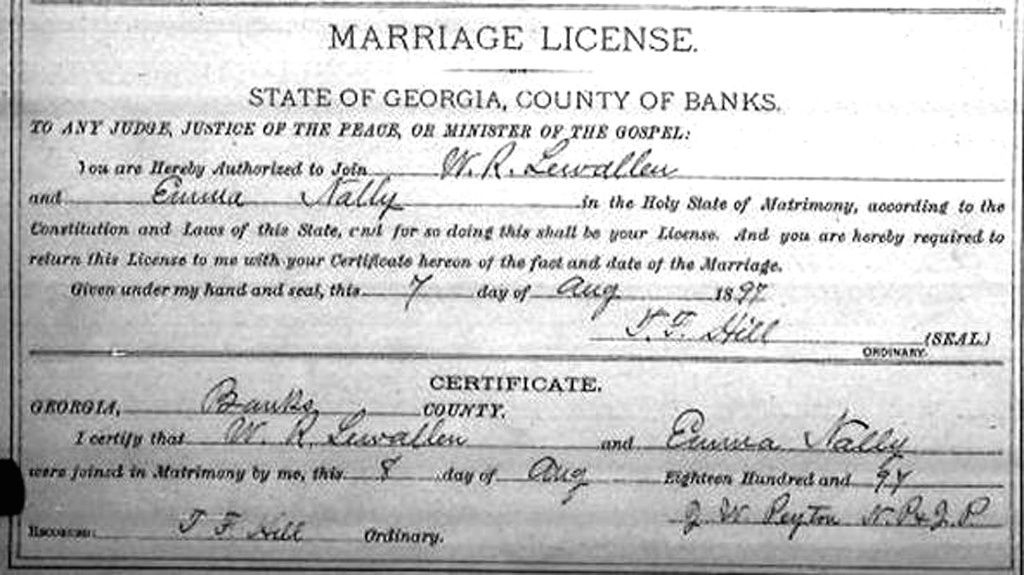 MARRIAGE LICENSE.
STATE OF GEORGIA, COUNTY OF BANKS.
TO ANY JUDGE, JUSTICE OF THE PEACE, OR MINISTER OF THE GOSPEL:
You are Hereby Authorized to Join W. R. Lewallen
and Emma Nally in the Holy State of Matrimony, according to the
Constitution and Laws of this State, and for so doing this shall be your License. And you are hereby required to
return this License to me with your Certificate hereon of the fact and date of the Marriage.
Given under my hand and seal, this 7 day of Aug 1897
T. F. Hill (SEAL)
ORDINARY.
CERTIFICATE.
GEORGIA, Banks COUNTY.
I certify that W. R. Lewallen and Emma Nally
were joined in Matrimony by me, this 8 day of Aug Eighteen Hundred and 97
J W Peyton N. P. & J. P
RECORDED: T F Hill Ordinary.